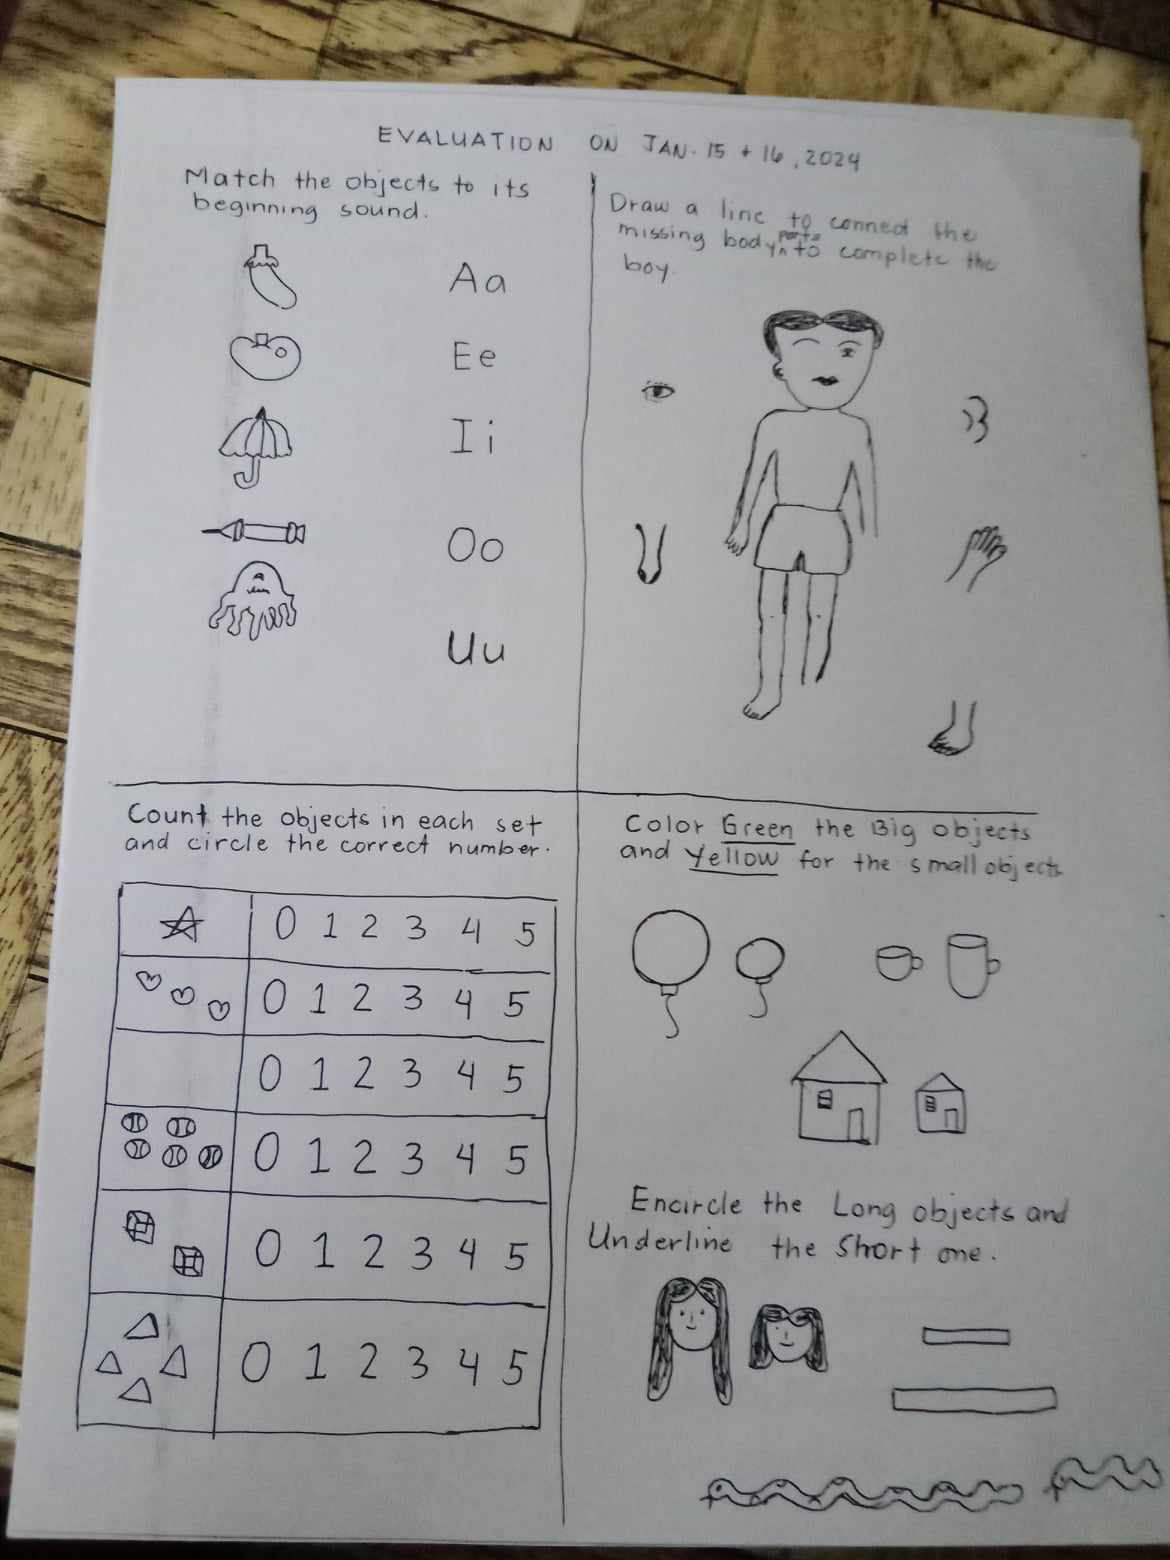 EVALUATION ON JAN. 15 + 16, 2024
Match the objects to its
beginning sound.
Aa
Ee
Ii
Oo
Uu
Draw a line to connect the
missing body parts to complete the
boy.
Count the objects in each set
and circle the correct number.
0 1 2 3 4 5
0 1 2 3 4 5
0 1 2 3 4 5
0 1 2 3 4 5
0 1 2 3 4 5
0 1 2 3 4 5
Color Green the Big objects
and Yellow for the small objects
Encircle the Long objects and
Underline the Short one.